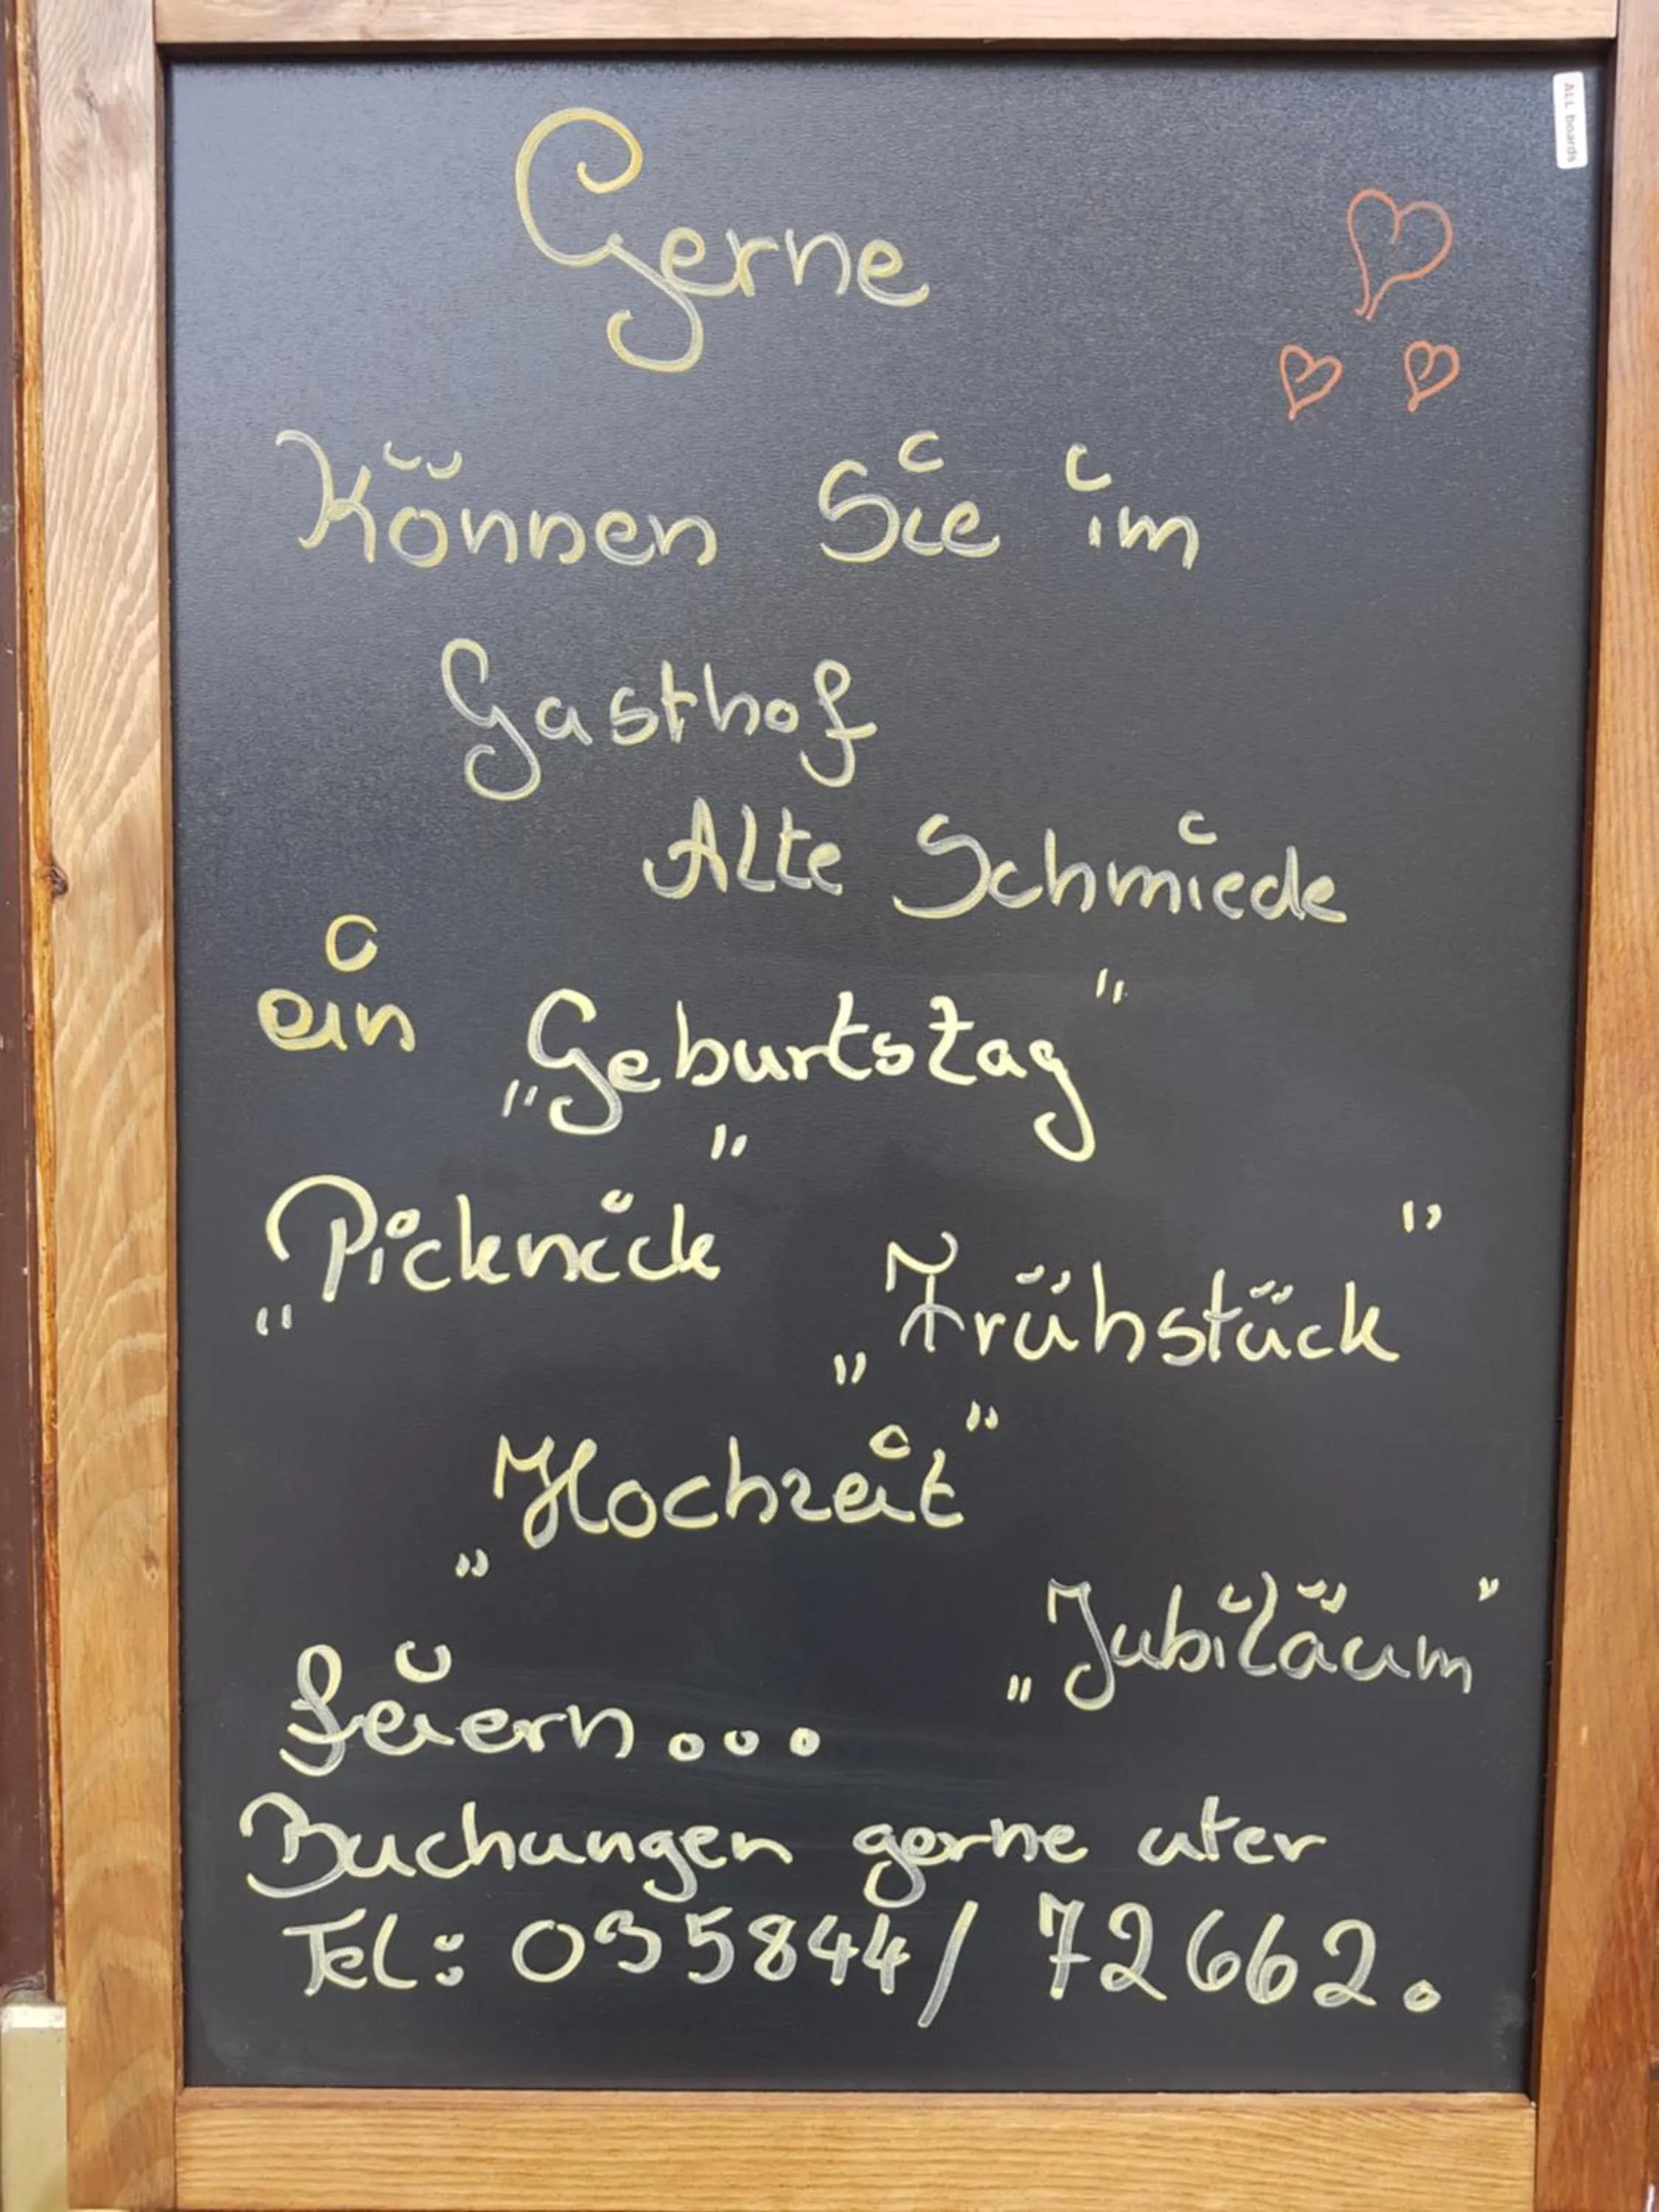 ALL boards
Gerne
Können Sie im
Gasthof
Alte Schmiede
ein „Geburtstag"
„Picknick" „Frühstück"
„Hochzeit"
„Jubiläum"
feiern...
Buchungen gerne uter
Tel: 035844/ 72662.